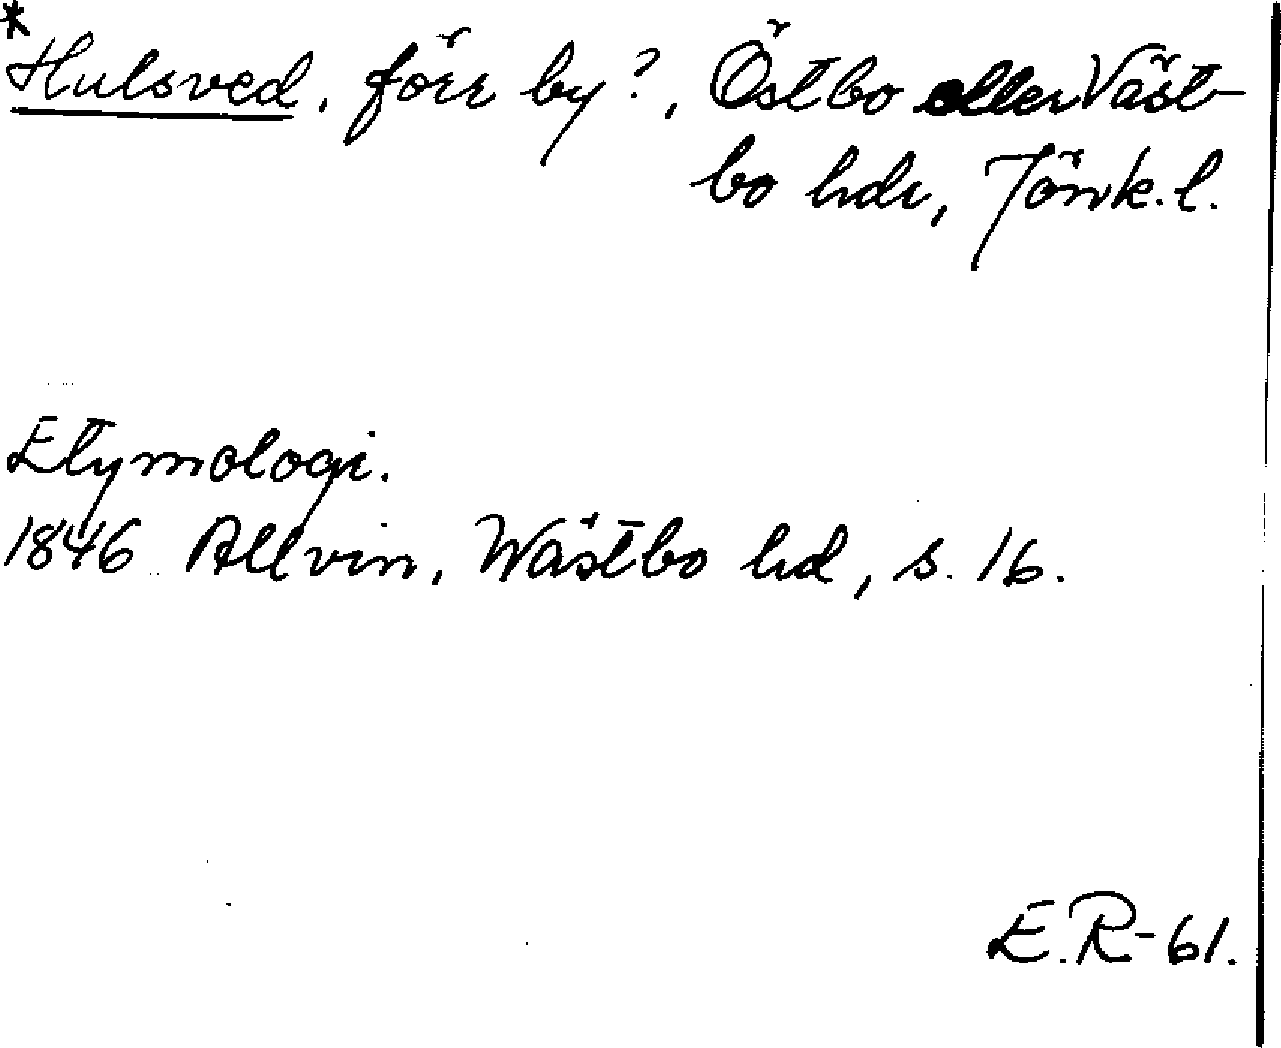 *Hulsved, förr by?, Östbo eller Väst-
bo hdr, Jönk. l.
Etymologi.
1846 Allvin, Wästbo hd, s. 16.
E.R-61.